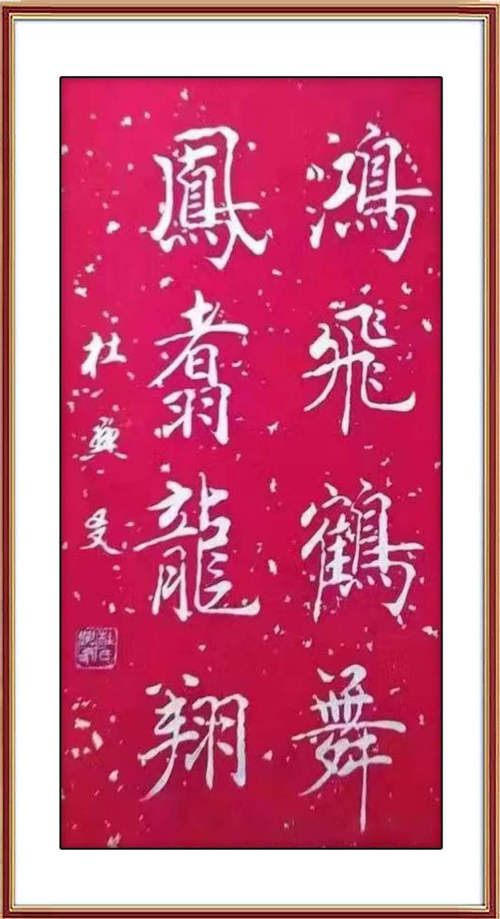 鴻飛鶴舞
鳳翥龍翔
杜